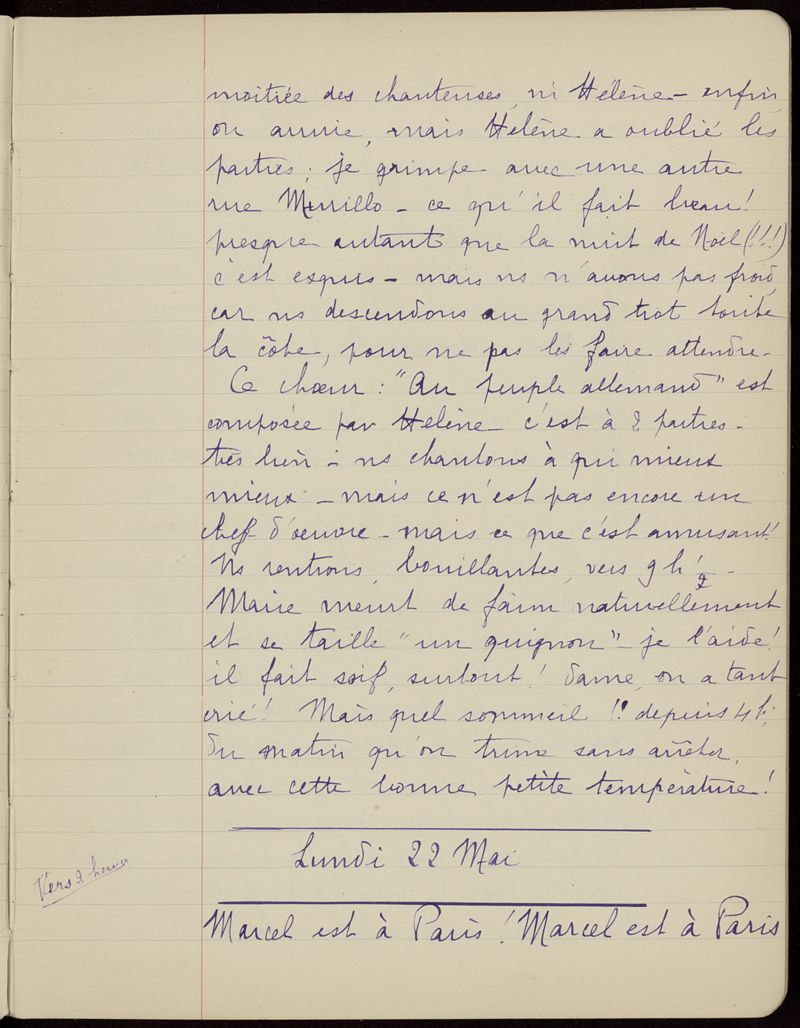 moitiée des chanteuses, ni Hélène - enfin
on arrive, mais Hélène a oublié les
parties; je grimpe avec une autre
rue Murillo - ce qu'il fait beau!
presque autant que la nuit de Noël (!!!)
c'est exquis - mais ns n'avons pas froid,
car ns descendons au grand trot toute
la côte, pour ne pas les faire attendre -
Ce chœur: "Au peuple allemand" est
composée par Hélène - c'est à 2 parties -
très bien - ns chantons à qui mieux
mieux - mais ce n'est pas encore un
chef d'oeuvre - mais ce que c'est amusant!
Ns rentrons, bouillantes, vers 9 h 1/2 -
Marie meurt de faim naturellement
et se taille "un quignon" - je l'aide!
il fait soif, surtout! dame, on a tant
crié! Mais quel sommeil!! depuis 4 h;
du matin qu'on trime sans arrêter,
avec cette bonne petite température!
Lundi 22 Mai
Vers 2 heures
Marcel est à Paris! Marcel est à Paris